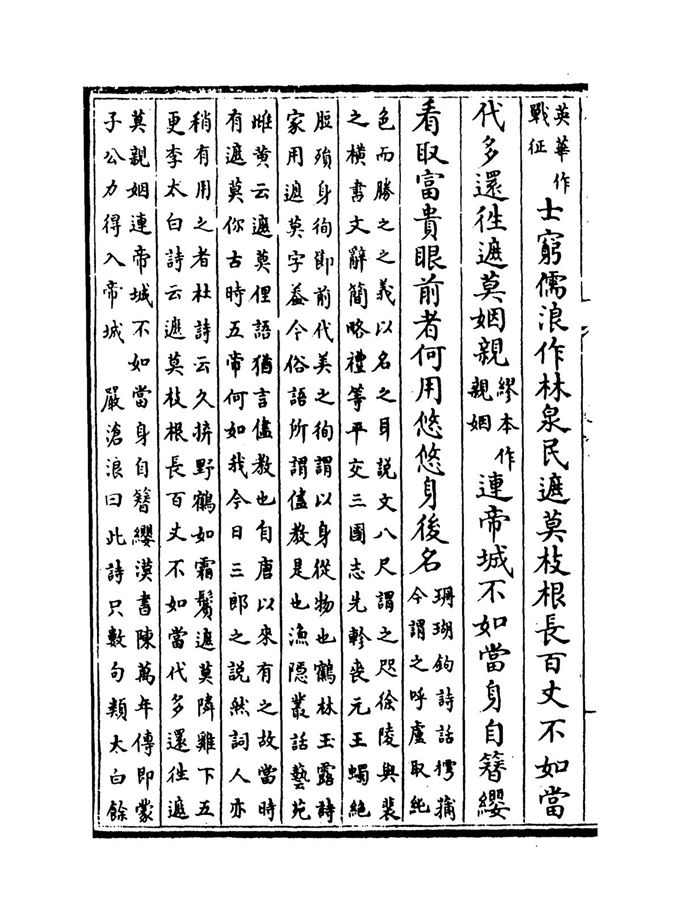 英華作
戰征
士窮儒浪作林泉民遮莫枝根長百丈不如當
代多還徃遮莫姻親
繆本作
親姻
連帝城不如當身自簪纓
看取富貴眼前者何用悠悠身後名
珊瑚鈎詩話摴蒱
今謂之呼盧取純
色而勝之之義以名之耳説文八尺謂之咫徐陵與裴
之橫書文辭簡略禮等平交三國志先軫喪元王蠋絶
脰殞身徇節前代美之徇謂以身從物也鶴林玉露詩
家用遮莫字葢今俗語所謂儘教是也漁隱叢話藝苑
雌黄云遮莫俚語猶言儘教也自唐以來有之故當時
有遮莫你古時五常何如我今日三郎之説然詞人亦
稍有用之者杜詩云久拚野鶴如霜鬢遮莫隣雞下五
更李太白詩云遮莫枝根長百丈不如當代多還徃遮
莫親姻連帝城不如當身自簪纓漢書陳萬年傳即蒙
子公力得入帝城　嚴滄浪曰此詩只數句類太白餘